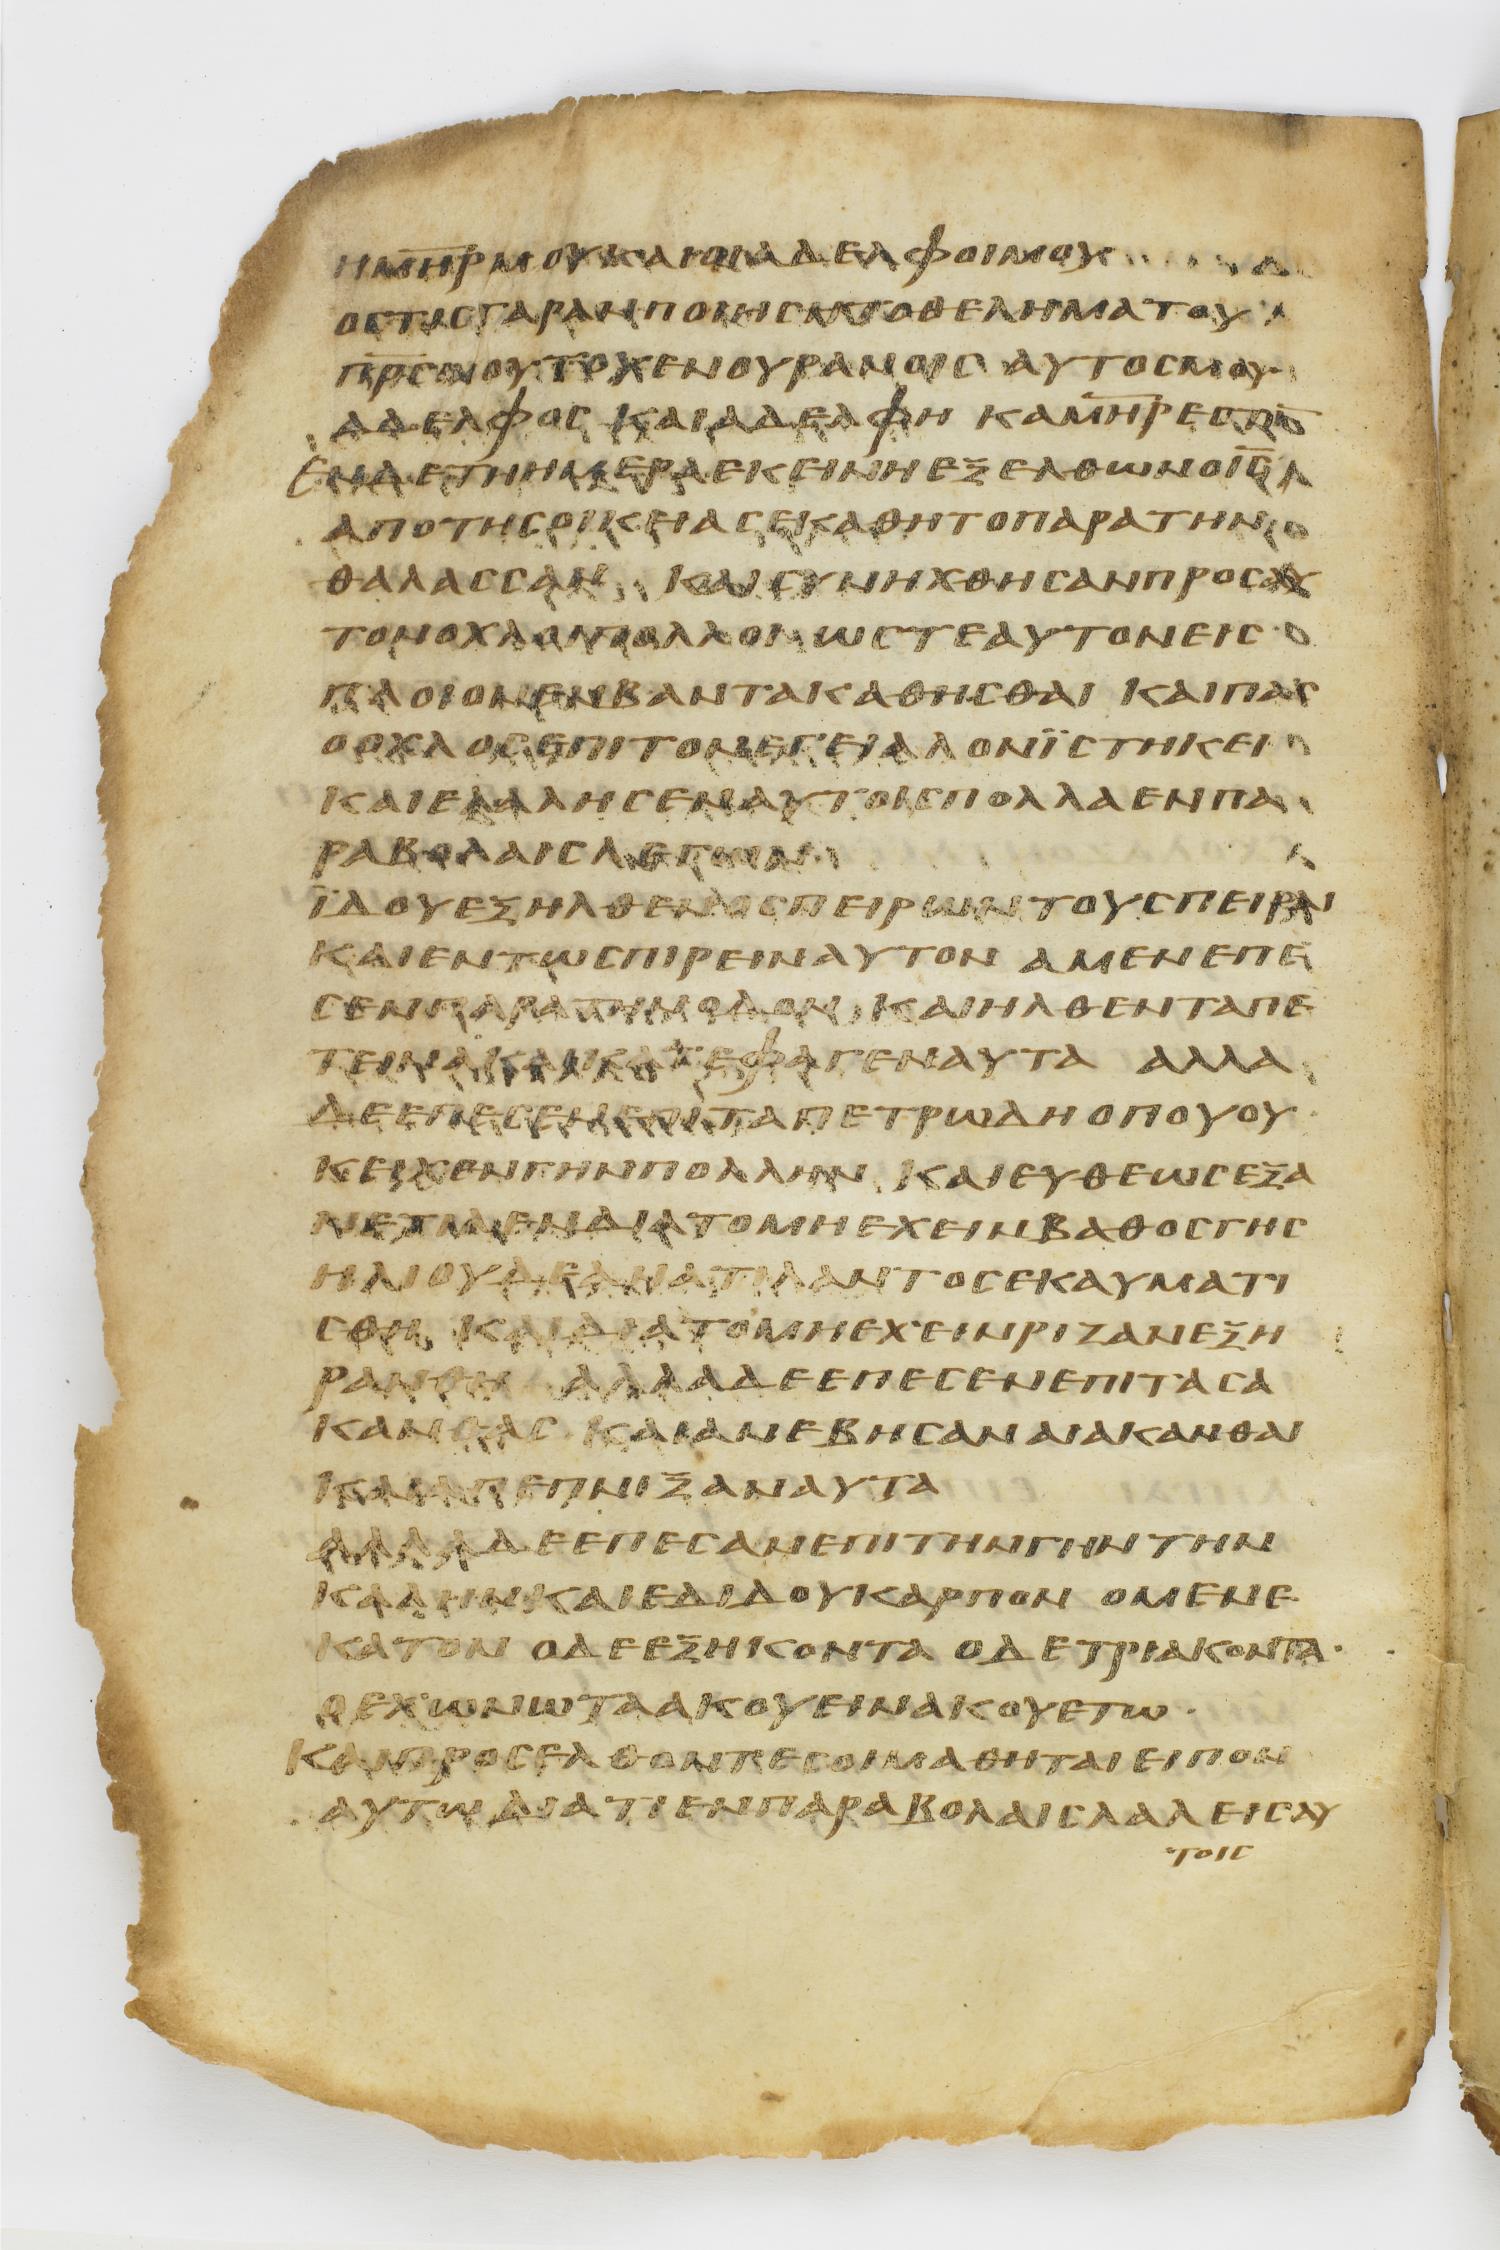 ΗΜΗΡΜΟΥΚΑΙΟΙΑΔΕΛΦΟΙΜΟΥ
ΟΣΤΙΣΓΑΡΑΝΠΟΙΗΣΗΤΟΘΕΛΗΜΑΤΟΥ
ΠΡΣΜΟΥΤΟΥΕΝΟΥΡΑΝΟΙΣ ΑΥΤΟΣΜΟΥ
ΑΔΕΛΦΟΣ ΚΑΙΑΔΕΛΦΗ ΚΑΙΜΗΡΕΣΤΙ
ΕΝΔΕΤΗΗΜΕΡΑΕΚΕΙΝΗΕΞΕΛΘΩΝΟΙΣ
ΑΠΟΤΗΣΟΙΚΙΑΣΕΚΑΘΗΤΟΠΑΡΑΤΗΝ
ΘΑΛΑΣΣΑΝ ΚΑΙΣΥΝΗΧΘΗΣΑΝΠΡΟΣΑΥ
ΤΟΝΟΧΛΟΙΠΟΛΛΟΙ ΩΣΤΕΑΥΤΟΝΕΙΣ
ΠΛΟΙΟΝΕΝΒΑΝΤΑΚΑΘΗΣΘΑΙ ΚΑΙΠΑΣ
ΟΟΧΛΟΣΕΠΙΤΟΝΑΙΓΙΑΛΟΝΪΣΤΗΚΕΙ
ΚΑΙΕΛΑΛΗΣΕΝΑΥΤΟΙΣΠΟΛΛΑΕΝΠΑ
ΡΑΒΟΛΑΙΣΛΕΓΩΝ
ΪΔΟΥΕΞΗΛΘΕΝΟΣΠΕΙΡΩΝΤΟΥΣΠΕΙΡΑΙ
ΚΑΙΕΝΤΩΣΠΙΡΕΙΝΑΥΤΟΝ ΑΜΕΝΕΠΕ
ΣΕΝΠΑΡΑΤΗΝΟΔΟΝ ΚΑΙΗΛΘΕΝΤΑΠΕ
ΤΕΙΝΑΚΑΙΚΑΤΕΦΑΓΕΝΑΥΤΑ ΑΛΛΑ
ΔΕΕΠΕΣΕΝΕΠΙΤΑΠΕΤΡΩΔΗΟΠΟΥΟΥ
ΚΕΙΧΕΝΓΗΝΠΟΛΛΗΝ ΚΑΙΕΥΘΕΩΣΕΞΑ
ΝΕΤΙΛΕΝΔΙΑΤΟΜΗΕΧΕΙΝΒΑΘΟΣΓΗΣ
ΗΛΙΟΥΔΕΑΝΑΤΙΛΑΝΤΟΣΕΚΑΥΜΑΤΙ
ΣΘΗ ΚΑΙΔΙΑΤΟΜΗΕΧΕΙΝΡΙΖΑΝΕΞΗ
ΡΑΝΘΗ ΑΛΛΑΔΕΕΠΕΣΕΝΕΠΙΤΑΣΑ
ΚΑΝΘΑΣ ΚΑΙΑΝΕΒΗΣΑΝΑΙΑΚΑΝΘΑΙ
ΚΑΙΑΠΕΠΝΙΞΑΝΑΥΤΑ
ΑΛΛΑΔΕΕΠΕΣΑΝΕΠΙΤΗΝΓΗΝΤΗΝ
ΚΑΛΗΝΚΑΙΕΔΙΔΟΥΚΑΡΠΟΝ ΟΜΕΝΕ
ΚΑΤΟΝ ΟΔΕΕΞΗΚΟΝΤΑ ΟΔΕΤΡΙΑΚΟΝΤΑ
ΟΕΧΩΝΩΤΑΑΚΟΥΕΙΝΑΚΟΥΕΤΩ
ΚΑΙΠΡΟΣΕΛΘΟΝΤΕΣΟΙΜΑΘΗΤΑΙΕΙΠΟΝ
ΑΥΤΩΔΙΑΤΙΕΝΠΑΡΑΒΟΛΑΙΣΛΑΛΕΙΣΑΥ
ΤΟΙΣ